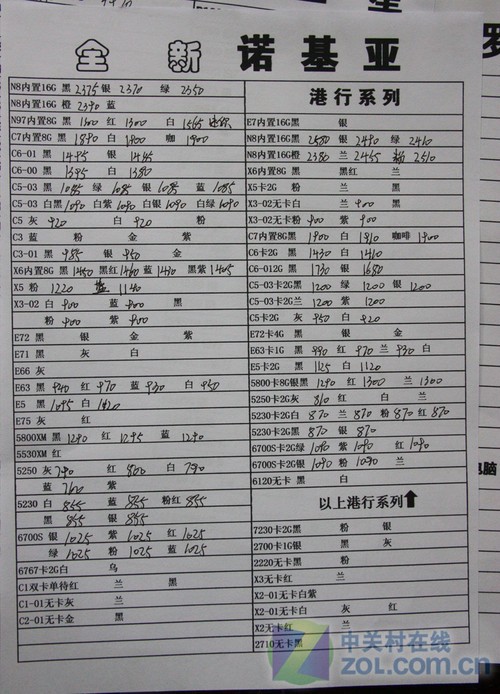 全新诺基亚
N8内置16G 黑 2375 银 2370 绿 2350
N8内置16G 橙 2390 蓝
N97内置8G 黑 1300 红 1300 白 1565
C7内置8G 黑 1890 白 1900 咖 1900
C6-01 黑 1495 银 1445
C6-00 黑 1395 白 1380
C5-03 黑 1085 绿 1085 银 1085 蓝 1085
C5-03 白黑 1090 白紫 1090 白银 1090 白绿 1090
C5 灰 920 白 920 粉
C3 蓝 粉 金 紫
C3-01 黑 985 银 950 金
X6内置8G 黑 1450 黑红 1460 蓝 1430 黑紫 1405
X5 粉 1220 蓝 1140
X3-02 白 900 蓝 900 黑
粉 900 紫 900
E72 黑 银 金 紫
E71 黑 灰 白
E66 灰
E63 黑 940 红 970 蓝 930 白 950
E5 黑 1095 白 1120
E75 灰 红
5800XM 黑 1290 红 1295 蓝 1290
5530XM 红
5250 灰 790 红 800 白 790
蓝 紫
5230 白 855 蓝 855 粉红 855
黑 855 银 855
6700S 银 1025 紫 1025 红 1025
绿 1025 粉 1025 蓝 1025
6767卡2G白 乌
C1双卡单待红 兰 黑
C1-01无卡灰 兰
C2-01无卡金 黑
港行系列
E7内置16G黑 银
N8内置16G黑 2580 银 2490 绿 2410
N8内置16G橙 2380 兰 2455
X6内置8G黑 黑红 兰
X5卡2G 粉 兰
X3-02无卡白 兰 900 黑
X3-02无卡粉 900 紫 900
C7内置8G黑 1900 白 1910 咖啡 1900
C6卡2G 黑 1430 白 1410
C6-012G 黑 1730 银 1680
C5-03卡2G黑 1200 绿 1200 银 1200
C5-03卡2G兰 1200 紫 1200
C5卡2G 灰 950 白 920
E72卡4G 黑 银 金
E63卡1G 黑 990 红 970 兰 930 白
E5卡2G 黑 1125 白 1120
5800卡8G银黑 1290 红 1300 兰 1300
5250卡2G灰 810 红 白 兰
5230卡2G白 870 兰 870 粉 870 红 870
5230卡2G黑 870 银 870
6700S卡2G绿 1090 紫 1090 红 1090
6700S卡2G银 1090 粉 1090 兰
6120无卡 黑 白
以上港行系列
7230卡2G黑 粉 银
2700卡1G银 黑 灰
2220无卡黑 粉
X3无卡红 兰
X2-01无卡白紫
X2-01无卡白 灰 红
X2无卡红 兰
2710无卡黑
电脑
中关村在线
ZOL.COM.CN